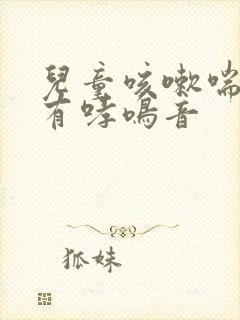 兒童咳嗽喘
有哮鳴音
狐妹